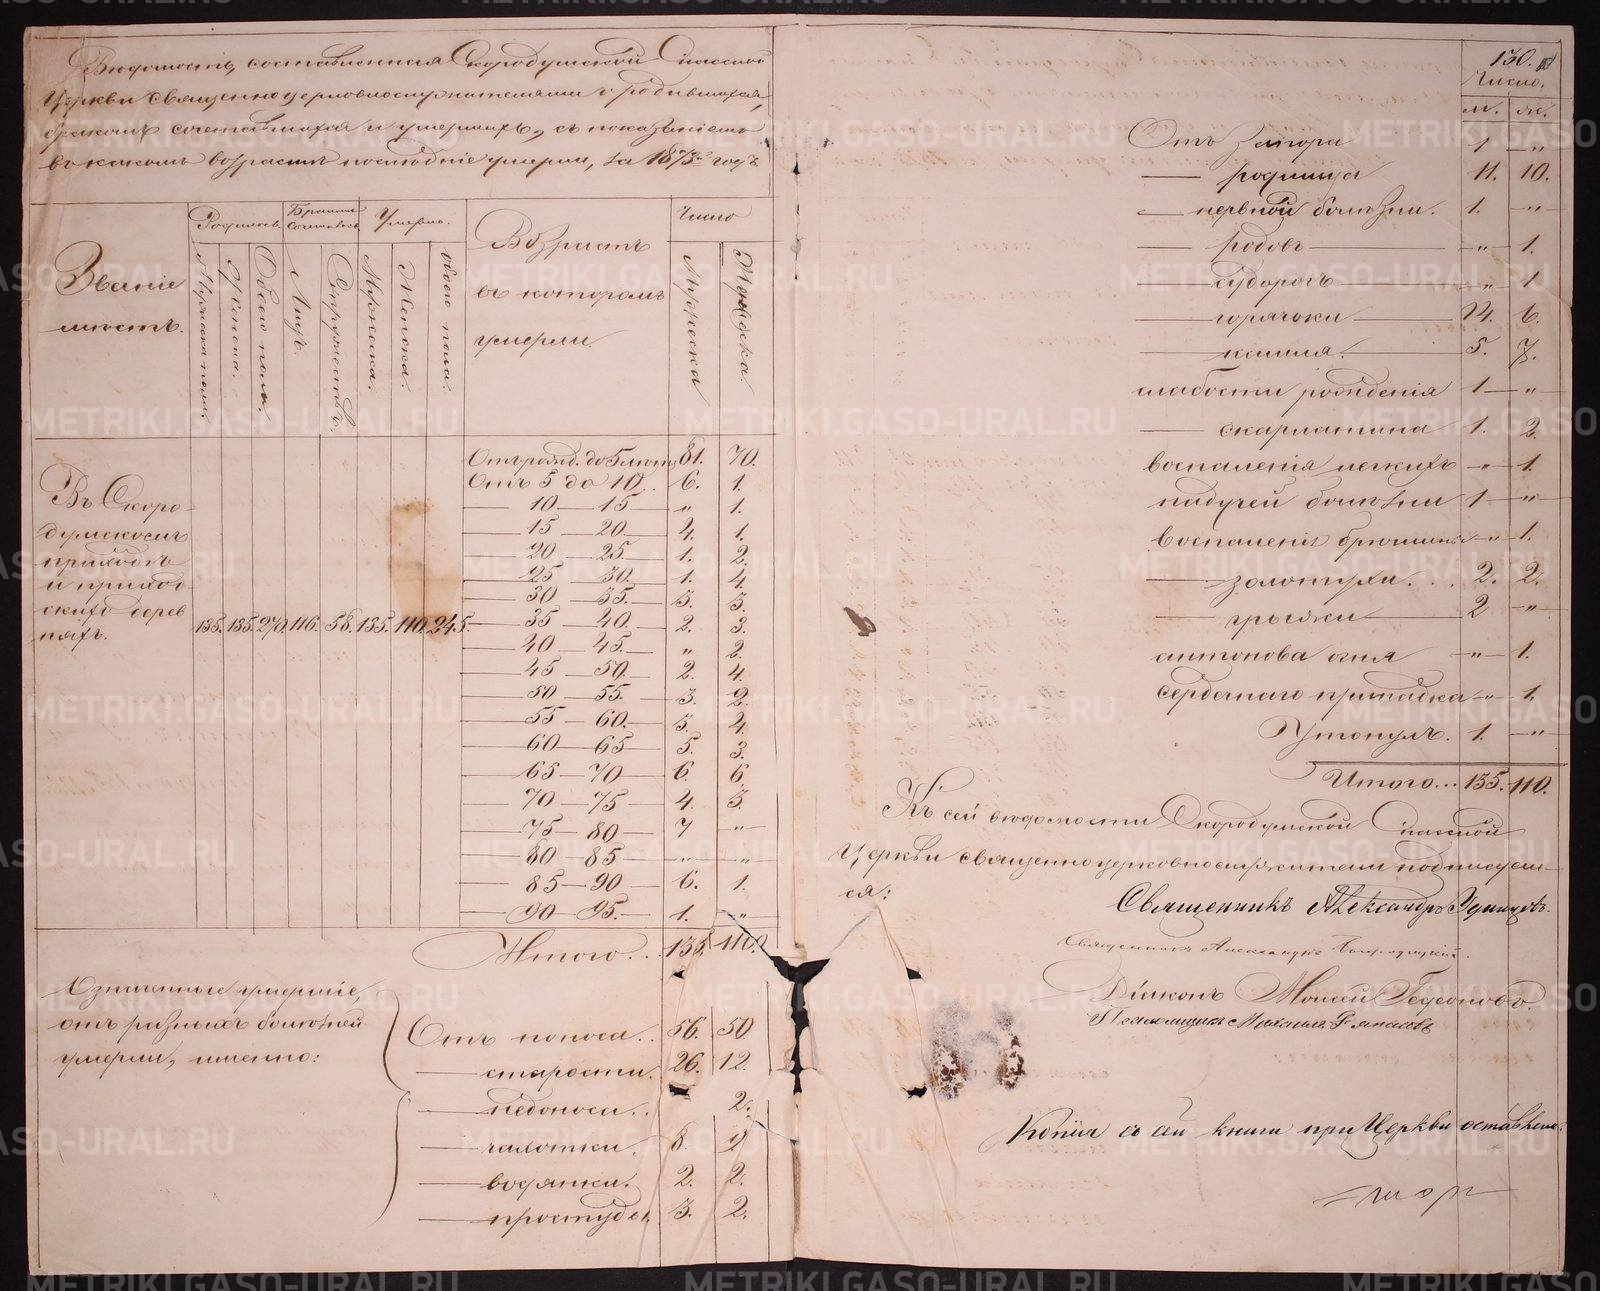 Вѣдомость, составленная Скородумской Спасской
Церкви священноцерковнослужителями о родившихся,
бракомъ сочетавшихся и умершихъ, съ показаніемъ
въ какомъ возрастѣ послѣдніе умерли, за 1873й годъ.
Званіе мѣстъ.
Родилось
Мужеска пола.
Женска.
Обоего пола.
Бракомъ сочеталось
Лицъ.
Супружествъ.
Умерло.
Мужеска.
Женска.
обоего пола.
Возрастъ
въ которомъ
умерли.
Число
Мужеска
Женска.
Въ Скоро-
думскомъ
приходѣ
и приход-
скихъ дерев
няхъ.
135. 135. 270. 116. 58. 135. 110. 245.
Отъ рожд. до 5 лѣтъ 81. 70.
Отъ 5 до 10. 6. 1.
— 10 — 15 — „ 1.
— 15 — 20 — 4. 1.
— 20 — 25. — 1. 2.
— 25 — 30. — 1. 4.
— 30 — 35. — 3. 3.
— 35 — 40. — 2. 3.
— 40 — 45. — „ 2.
— 45 — 50. — 2. 4.
— 50 — 55. — 3. 2.
— 55 — 60. — 3. 4.
— 60 — 65 — 5. 3.
— 65 — 70 — 6. 6.
— 70 — 75 — 4. 3.
— 75 — 80 — 7 „
— 80 — 85 — „ „
— 85 — 90 — 6. 1.
— 90 — 95. — 1. „
Итого... 135. 110.
Означенные умершіе,
отъ разныхъ болѣзней
умерли, именно:
Отъ поноса.. 56. 50.
— старости. 26. 12.
— недоноси.. 2.
— чахотки. 8. 9
— водянки. 2. 2.
— простуды. 3. 2.
130.
Число.
м. ж.
Отъ запора 1 „
— родимца 11. 10.
— нервной болѣзни. 1. „
— родовъ „ 1.
— судорогъ „ 1
— горячки 14. 6.
— кашля. 5. 7.
слабости рожденія 1 „
— скарлатина 1. 2.
воспаленія легкихъ „ 1.
падучей болѣзни 1 „
воспаленія брюшины „ 1.
— золотухи... 2. 2.
— грыжи 2 „
антонова огня „ 1.
сердечнаго припадка „ 1.
Утонулъ. 1. „
Итого... 135. 110.
Къ сей вѣдомости Скородумской Спасской
Церкви священноцерковнослужители подписуем-
ся:
Священникъ Александръ Удинцовъ.
Священникъ Александръ
Діаконъ Моисей Гедеоновъ.
Псаломщикъ Михаилъ
Копія съ сей книги при Церкви оставлена.
METRIKI.GASO-URAL.RU